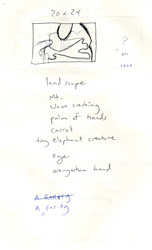 20 x 24
?
land scape
Mt.
wave crashing
palm of hands
carrot
tiny elephant creature
eye
orangutan hand